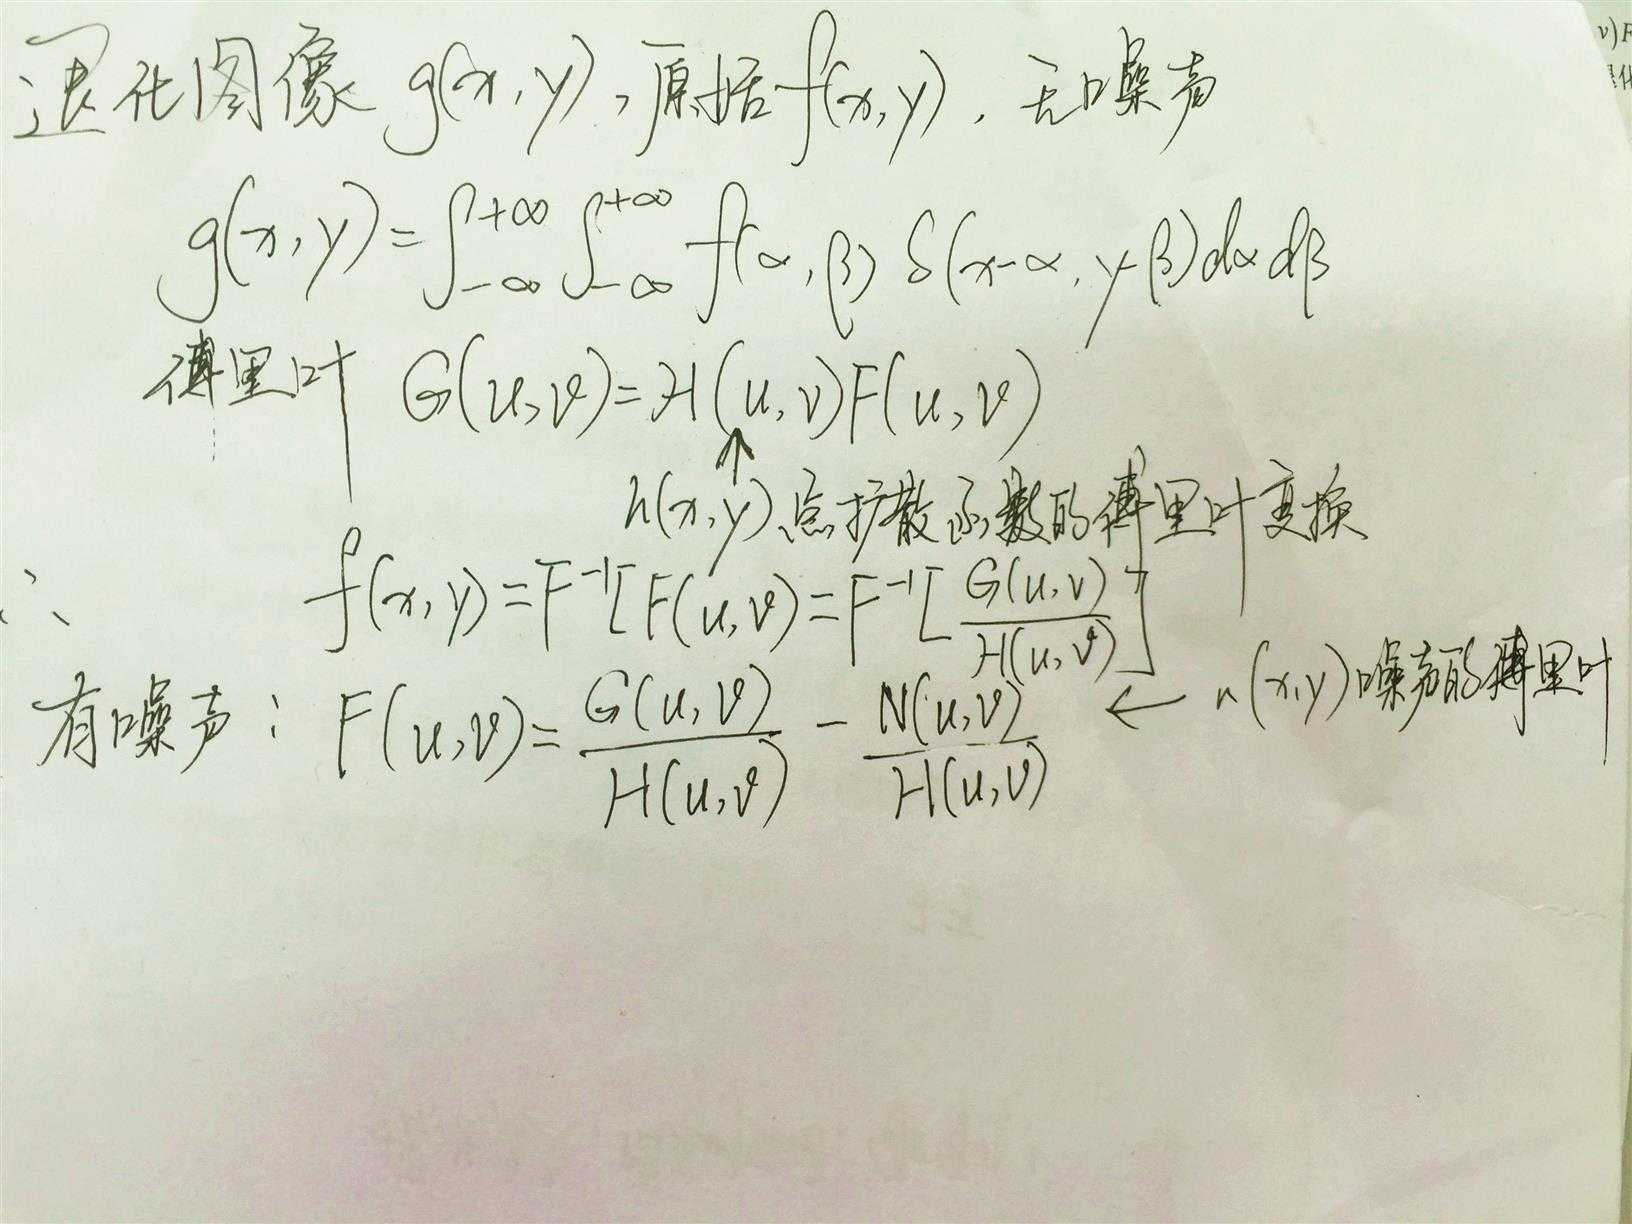 退化图像 g(x,y),原始 f(x,y), 无噪声
g(x,y)=∫_{-∞}^{+∞}∫_{-∞}^{+∞} f(α,β) δ(x-α,y-β)dαdβ
傅里叶 G(u,v)=H(u,v)F(u,v)
↑
h(x,y)点扩散函数的傅里叶变换
∴ f(x,y)=F⁻¹[F(u,v)=F⁻¹[G(u,v)/H(u,v)]
有噪声: F(u,v)=G(u,v)/H(u,v) - N(u,v)/H(u,v) ← n(x,y)噪声的傅里叶